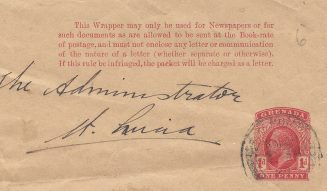 This Wrapper may only be used for Newspapers or for
such documents as are allowed to be sent at the Book-rate
of postage, and must not enclose any letter or communication
of the nature of a letter (whether separate or otherwise).
If this rule be infringed, the packet will be charged as a letter.
The Administrator
St. Lucia
GRENADA
1d
ONE PENNY